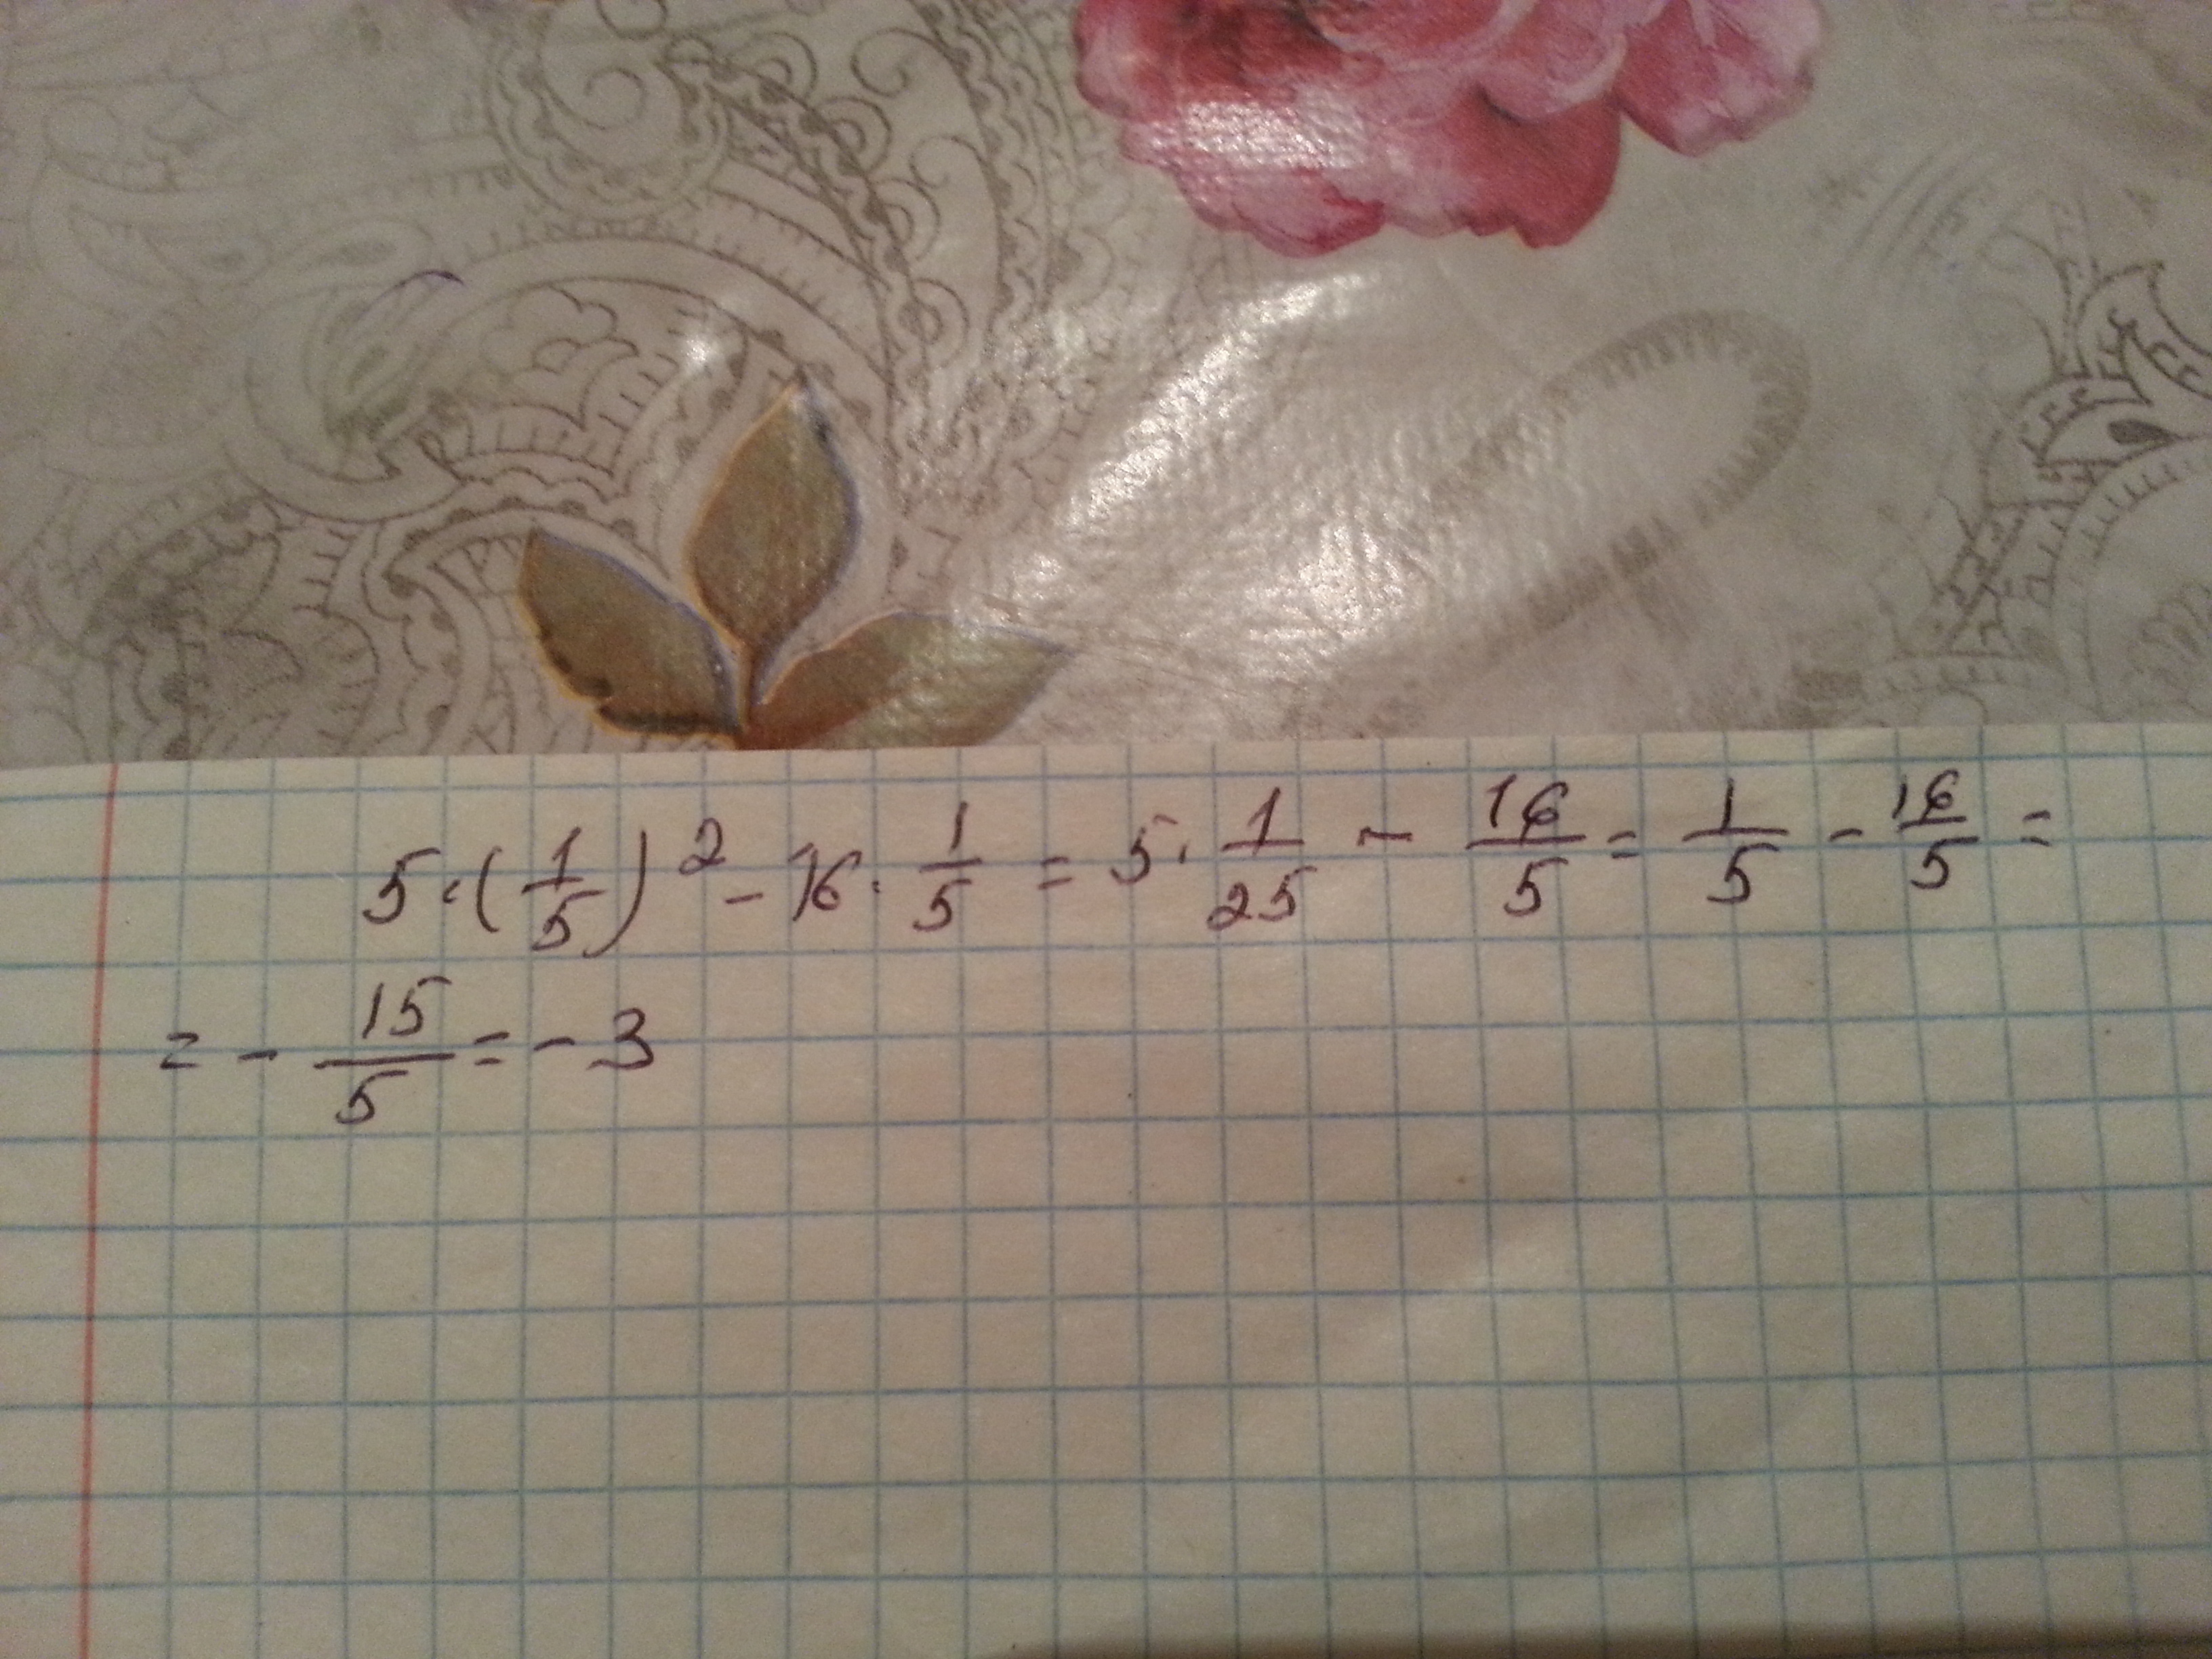 5·(1/5)² - 16·1/5 = 5·1/25 - 16/5 = 1/5 - 16/5 =
= - 15/5 = - 3